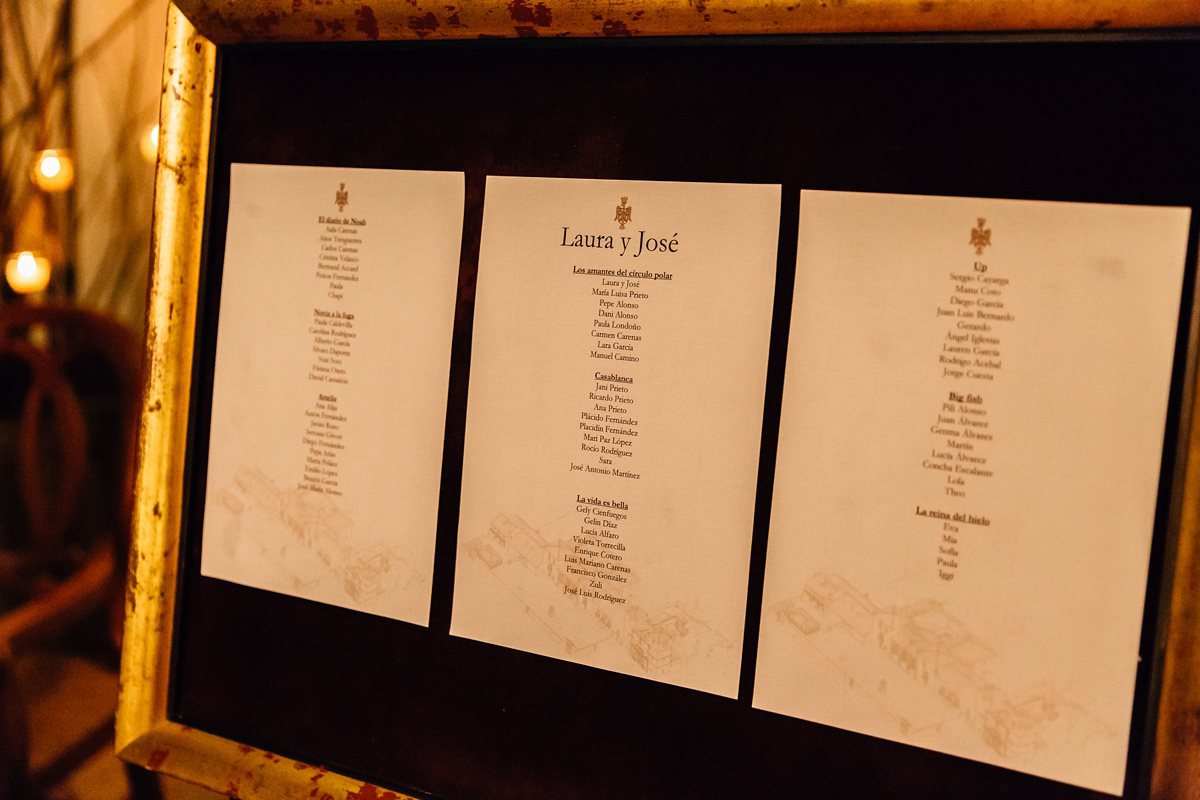 El diario de Noah
Aida Carenas
Carlos Carenas
Cristina Velasco
Bernard Accard
Fernández
Paula
Chapi
Novia a la fuga
Paola Caldevilla
Carolina Rodríguez
Alberto García
Álvaro Daporta
Nuri Soto
Fátima Otero
David Castañón
Amelie
Ana
Fernández
Javier
Diego Fernández
Pepe Arias
María Peláez
Emilio López
Beatriz García
José María Alonso
Laura y José
Los amantes del círculo polar
Laura y José
María Luisa Prieto
Pepe Alonso
Dani Alonso
Paula Londoño
Carmen Carenas
Lara García
Manuel Camino
Casablanca
Jani Prieto
Ricardo Prieto
Ana Prieto
Plácido Fernández
Placidín Fernández
Mari Paz López
Rocío Rodríguez
Sara
José Antonio Martínez
La vida es bella
Gely Cienfuegos
Gelin Díaz
Lucía Alfaro
Violeta Torrecilla
Enrique Cotero
Luis Mariano Carenas
Francisco González
Zuli
José Luis Rodríguez
Up
Sergio Cayarga
Manu Coto
Diego García
Juan Luis Bernardo
Gerardo
Ángel Iglesias
Lauren García
Rodrigo Acebal
Jorge Cuesta
Big fish
Pili Alonso
Juan Álvarez
Gemma Álvarez
Martín
Lucía Álvarez
Concha Escalante
Lola
Theo
La reina del hielo
Eva
Mia
Sofía
Paula
Iggi